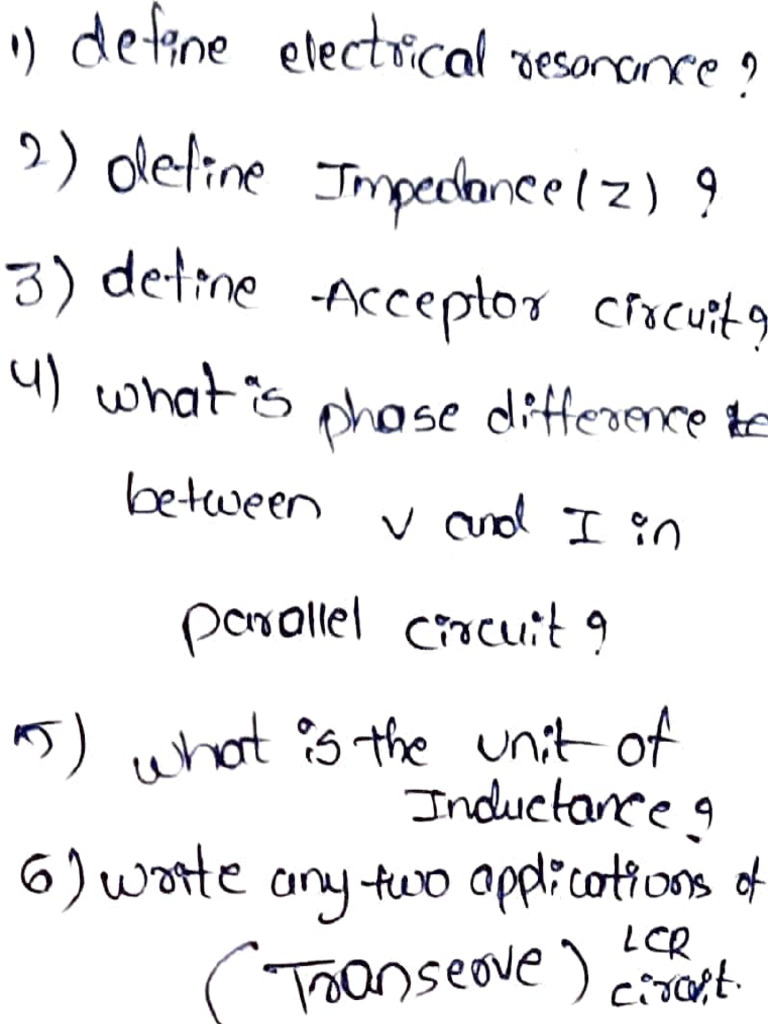 1) define electrical resonance ?
2) define Impedance (z) ?
3) define Acceptor circuit ?
4) what is phase difference
between v and I in
parallel circuit ?
5) what is the unit of
Inductance ?
6) write any two applications of
LCR
(Transeove) circuit.